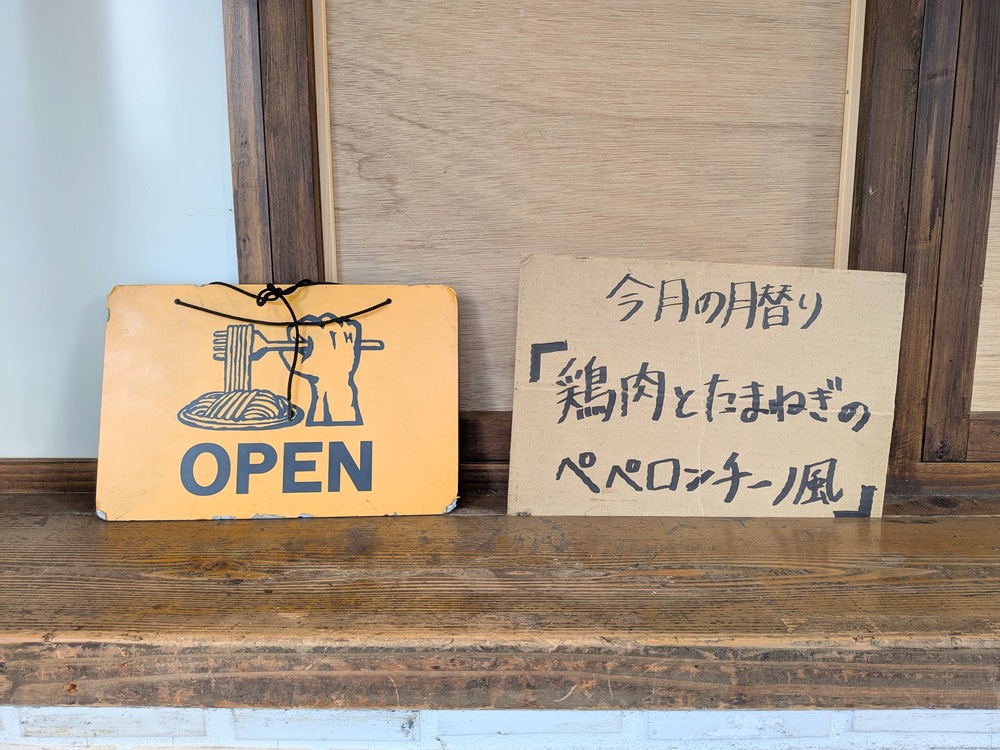 OPEN
今月の月替り
「鶏肉とたまねぎの
ペペロンチーノ風」